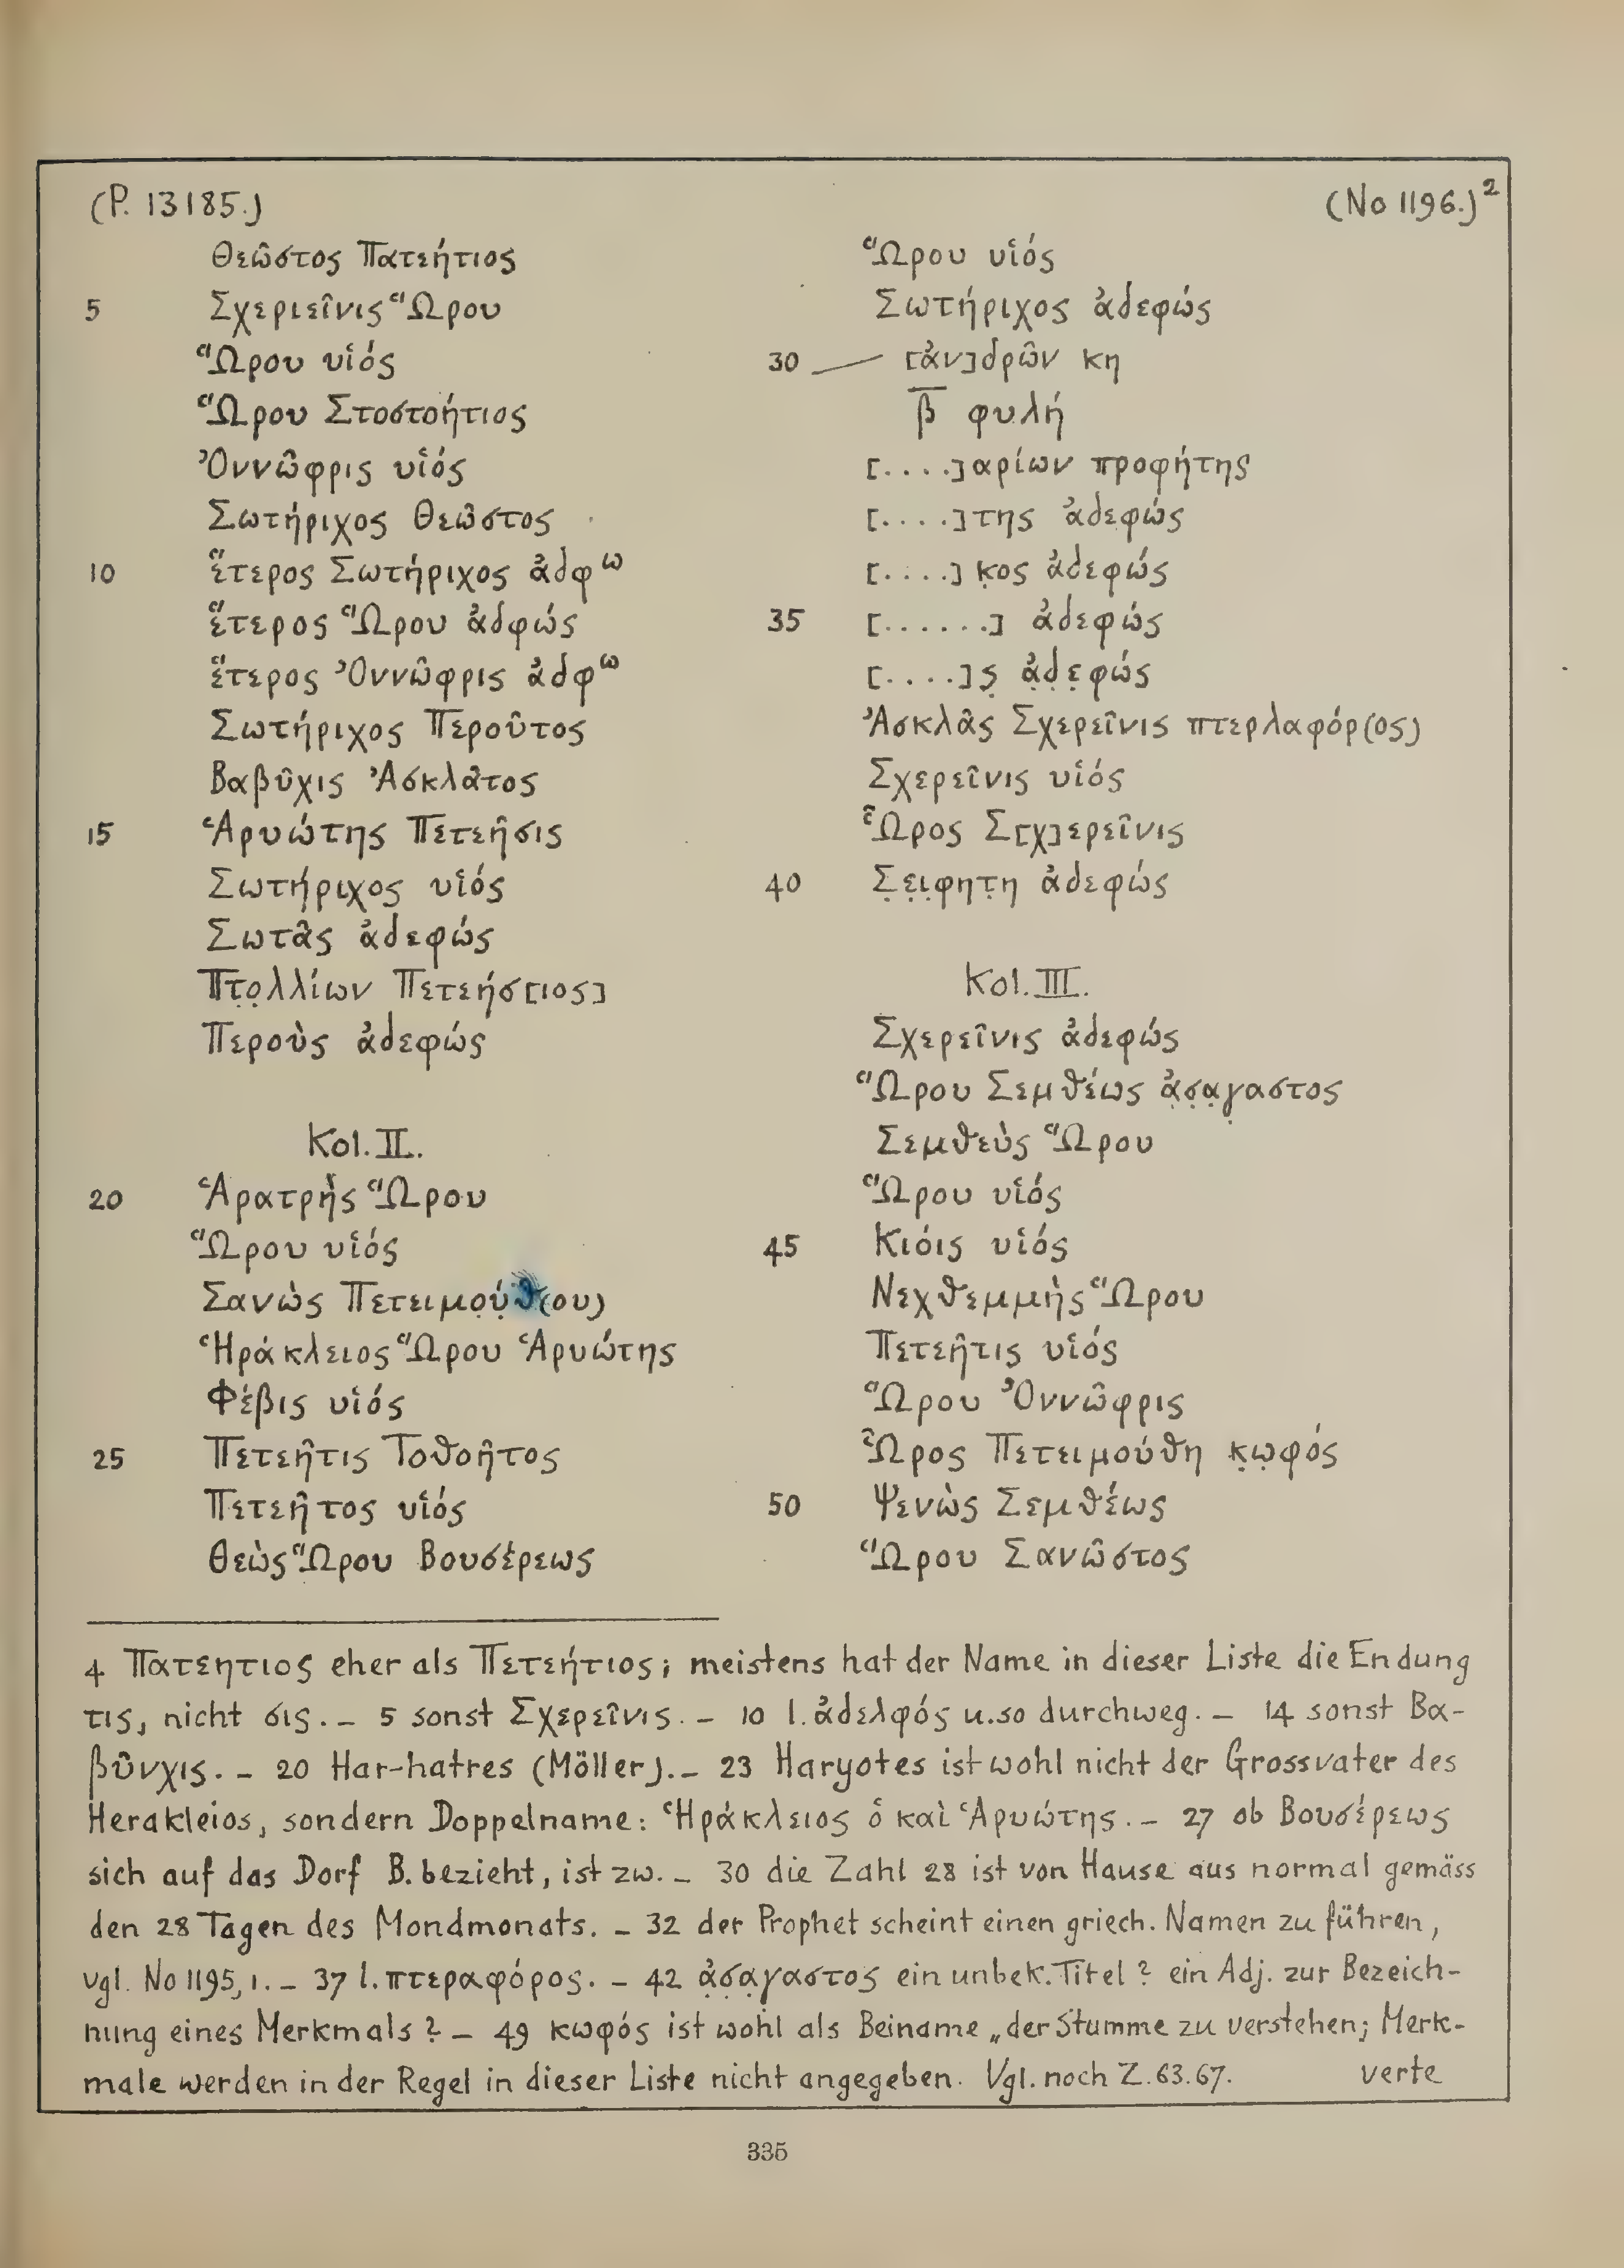 (P. 13185.)
(No 1196.)²
Θεῶστος Πατεήτιος
5 Σχεριεῖνις Ὥρου
Ὥρου υἱός
Ὥρου Στοστοήτιος
Ὀννῶφρις υἱός
Σωτήριχος Θεῶστος
10 ἕτερος Σωτήριχος ἀδφω
ἕτερος Ὥρου ἀδφώς
ἕτερος Ὀννῶφρις ἀδφω
Σωτήριχος Περοῦτος
Βαβῦχις Ἀσκλᾶτος
15 Ἁρυώτης Πετεῆσις
Σωτήριχος υἱός
Σωτᾶς ἀδεφώς
Πτ̣ο̣λλίων Πετεήσ[ιος]
Περοὺς ἀδεφώς
Kol. II.
20 Ἁρατρῆς Ὥρου
Ὥρου υἱός
Σανὼς Πετειμο̣ύ̣θ(ου)
Ἡράκλειος Ὥρου Ἁρυώτης
Φέβις υἱός
25 Πετεῆτις Τοθοῆτος
Πετεῆτος υἱός
Θεὼς Ὥρου Βουσέρεως
Ὥρου υἱός
Σωτήριχος ἀδεφώς
30 [ἀν]δρῶν κη
β̅ φυλή
[. . . .]αρίων προφήτης
[. . . .]της ἀδεφώς
[. . . .]κ̣ος ἀδεφώς
35 [. . . . . .] ἀδεφώς
[. . . .]ς̣ ἀ̣δ̣ε̣φώς
Ἀσκλᾶς Σχερεῖνις πτερλαφόρ(ος)
Σχερεῖνις υἱός
Ὧρος Σ[χ]ερεῖνις
40 Σ̣ε̣ι̣φητ̣η ἀδεφώς
Kol. III.
Σχερεῖνις ἀδεφώς
Ὥρου Σεμθέως ἀ̣σ̣α̣γ̣αστος
Σεμθεὺς Ὥρου
Ὥρου υἱός
45 Κιόις υἱός
Νεχθεμμὴς Ὥρου
Πετεῆτις υἱός
Ὥρου Ὀννῶφρις
Ὧρος Πετειμούθη κ̣ω̣φός
50 Ψενὼς Σεμθέως
Ὥρου Σανῶστος
4 Πατεητιος eher als Πετεήτιος; meistens hat der Name in dieser Liste die Endung
τις, nicht σις. – 5 sonst Σχερεῖνις. – 10 l. ἀδελφός u. so durchweg. – 14 sonst Βα-
βῦνχις. – 20 Har-hatres (Möller). – 23 Haryotes ist wohl nicht der Grossvater des
Herakleios, sondern Doppelname: Ἡράκλειος ὁ καὶ Ἁρυώτης. – 27 ob Βουσέρεως
sich auf das Dorf B. bezieht, ist zw. – 30 die Zahl 28 ist von Hause aus normal gemäss
den 28 Tagen des Mondmonats. – 32 der Prophet scheint einen griech. Namen zu führen,
vgl. No 1195, 1. – 37 l. πτεραφόρος. – 42 ἀ̣σ̣α̣γαστος ein unbek. Titel? ein Adj. zur Bezeich-
nung eines Merkmals? – 49 κωφός ist wohl als Beiname „der Stumme zu verstehen; Merk-
male werden in der Regel in dieser Liste nicht angegeben. Vgl. noch Z. 63. 67. verte
335